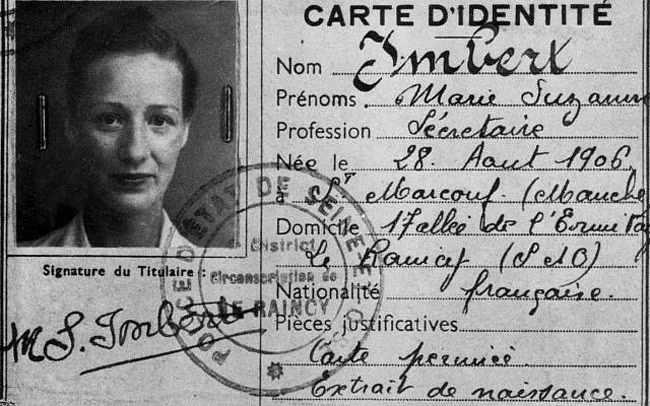 CARTE D'IDENTITÉ
Nom Imbert
Prénoms Marie Suzanne
Profession Sécretaire
Née le 28. Aout 1906.
à St Marcouf. (Manche)
Domicile 17 allée de l'Ermitage
Le Raincy (S&O)
Nationalité française.
Pièces justificatives
Carte périmée.
Extrait de naissance.
Signature du Titulaire :
M S. Imbert
POLICE D'ETAT DE SEINE ET
District
Circonscription de
LE RAINCY